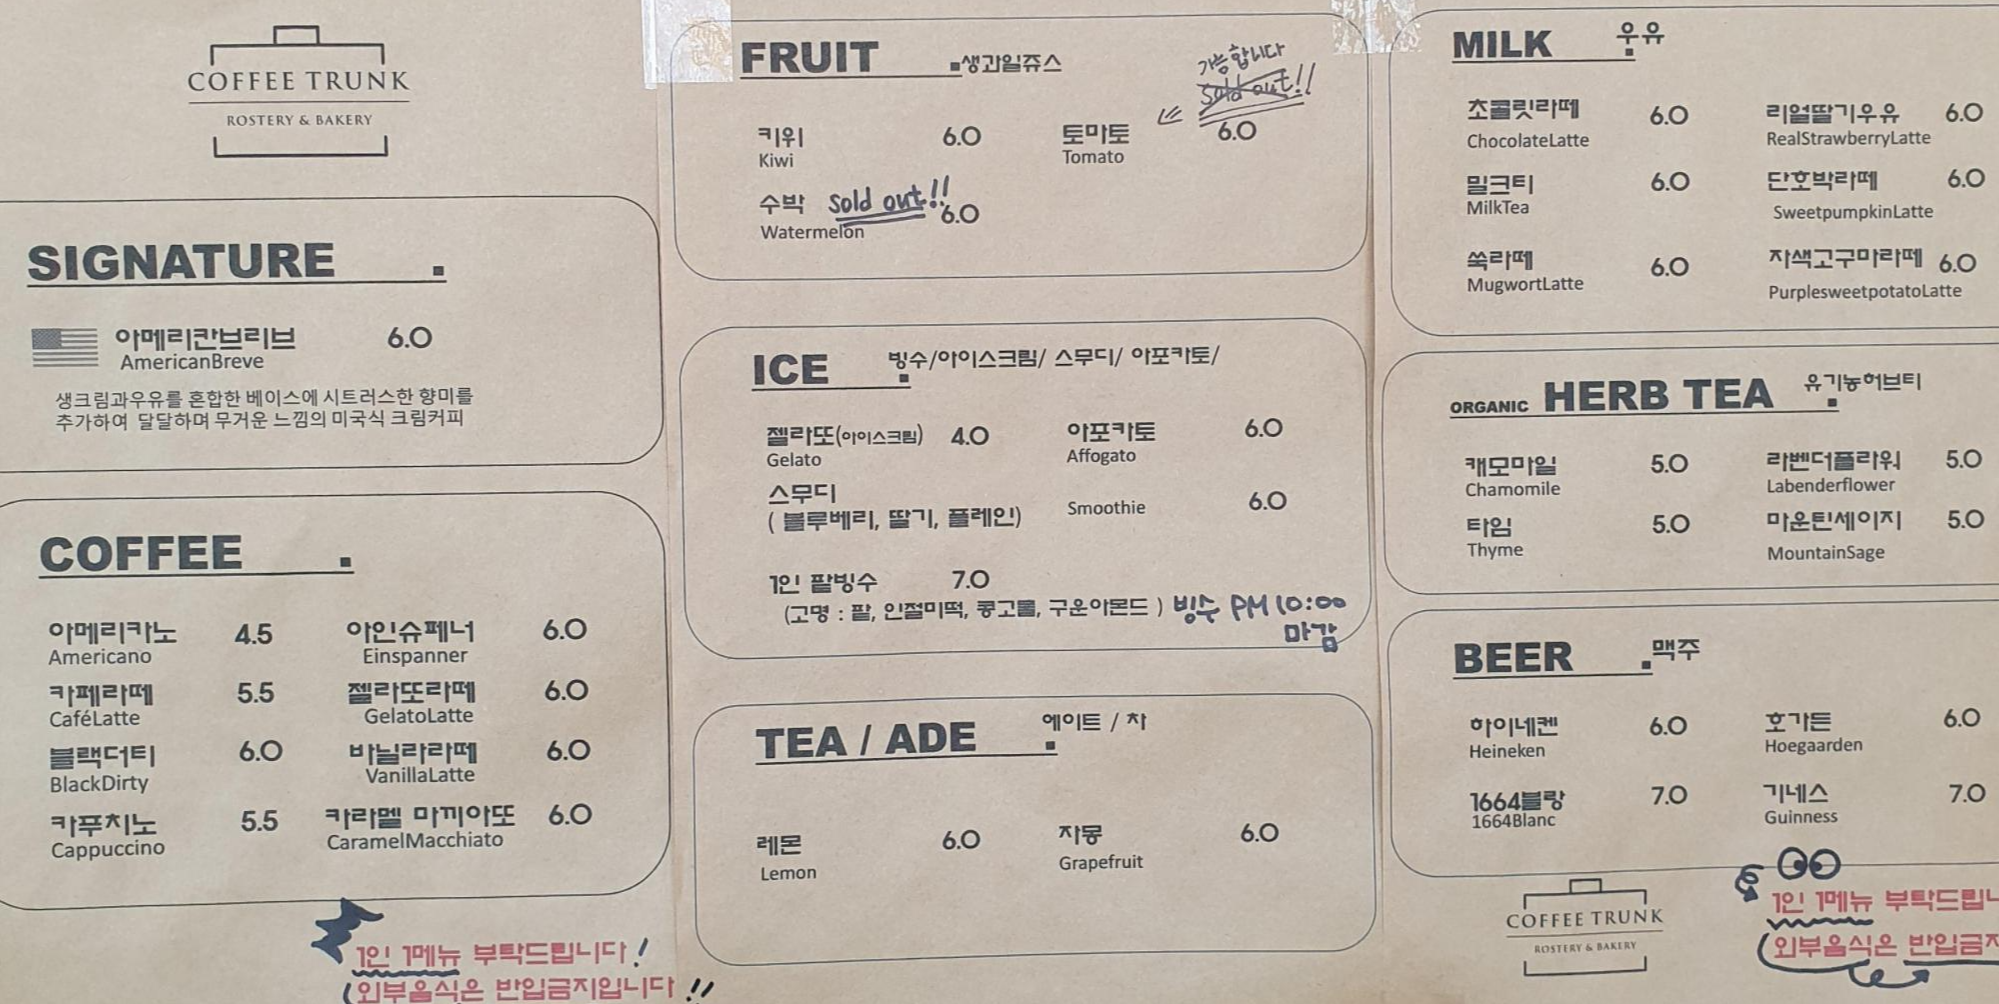 COFFEE TRUNK
ROSTERY & BAKERY
SIGNATURE
아메리칸브리브 6.0
AmericanBreve
생크림과우유를 혼합한 베이스에 시트러스한 향미를
추가하여 달달하며 무거운 느낌의 미국식 크림커피
COFFEE
아메리카노 4.5 아인슈페너 6.0
Americano Einspanner
카페라떼 5.5 젤라또라떼 6.0
CaféLatte GelatoLatte
블랙더티 6.0 바닐라라떼 6.0
BlackDirty VanillaLatte
카푸치노 5.5 카라멜 마끼아또 6.0
Cappuccino CaramelMacchiato
1인 1메뉴 부탁드립니다!
(외부음식은 반입금지입니다!!
FRUIT 생과일쥬스
가능합니다
sold out!!
키위 6.0 토마토 6.0
Kiwi Tomato
수박 sold out!! 6.0
Watermelon
ICE 빙수/아이스크림/ 스무디/ 아포카토/
젤라또(아이스크림) 4.0 아포카토 6.0
Gelato Affogato
스무디
( 블루베리, 딸기, 플레인) Smoothie 6.0
1인 팥빙수 7.0
(고명 : 팥, 인절미떡, 콩고물, 구운아몬드 ) 빙수 PM 10:00
마감
TEA / ADE 에이트 / 차
레몬 6.0 자몽 6.0
Lemon Grapefruit
MILK 우유
초콜릿라떼 6.0 리얼딸기우유 6.0
ChocolateLatte RealStrawberryLatte
밀크티 6.0 단호박라떼 6.0
MilkTea SweetpumpkinLatte
쑥라떼 6.0 자색고구마라떼 6.0
MugwortLatte PurplesweetpotatoLatte
ORGANIC HERB TEA 유기농허브티
캐모마일 5.0 라벤더플라워 5.0
Chamomile Labenderflower
타임 5.0 마운틴세이지 5.0
Thyme MountainSage
BEER 맥주
하이네켄 6.0 호가든 6.0
Heineken Hoegaarden
1664블랑 7.0 기네스 7.0
1664Blanc Guinness
COFFEE TRUNK
ROSTERY & BAKERY
1인 1메뉴 부탁드립니
(외부음식은 반입금지